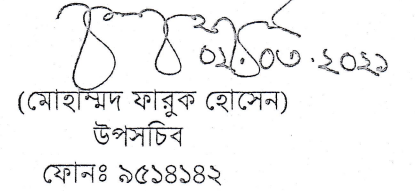 ০১.০৩.২০২১
(মোহাম্মদ ফারুক হোসেন)
উপসচিব
ফোনঃ ৯৫১৪১৪২